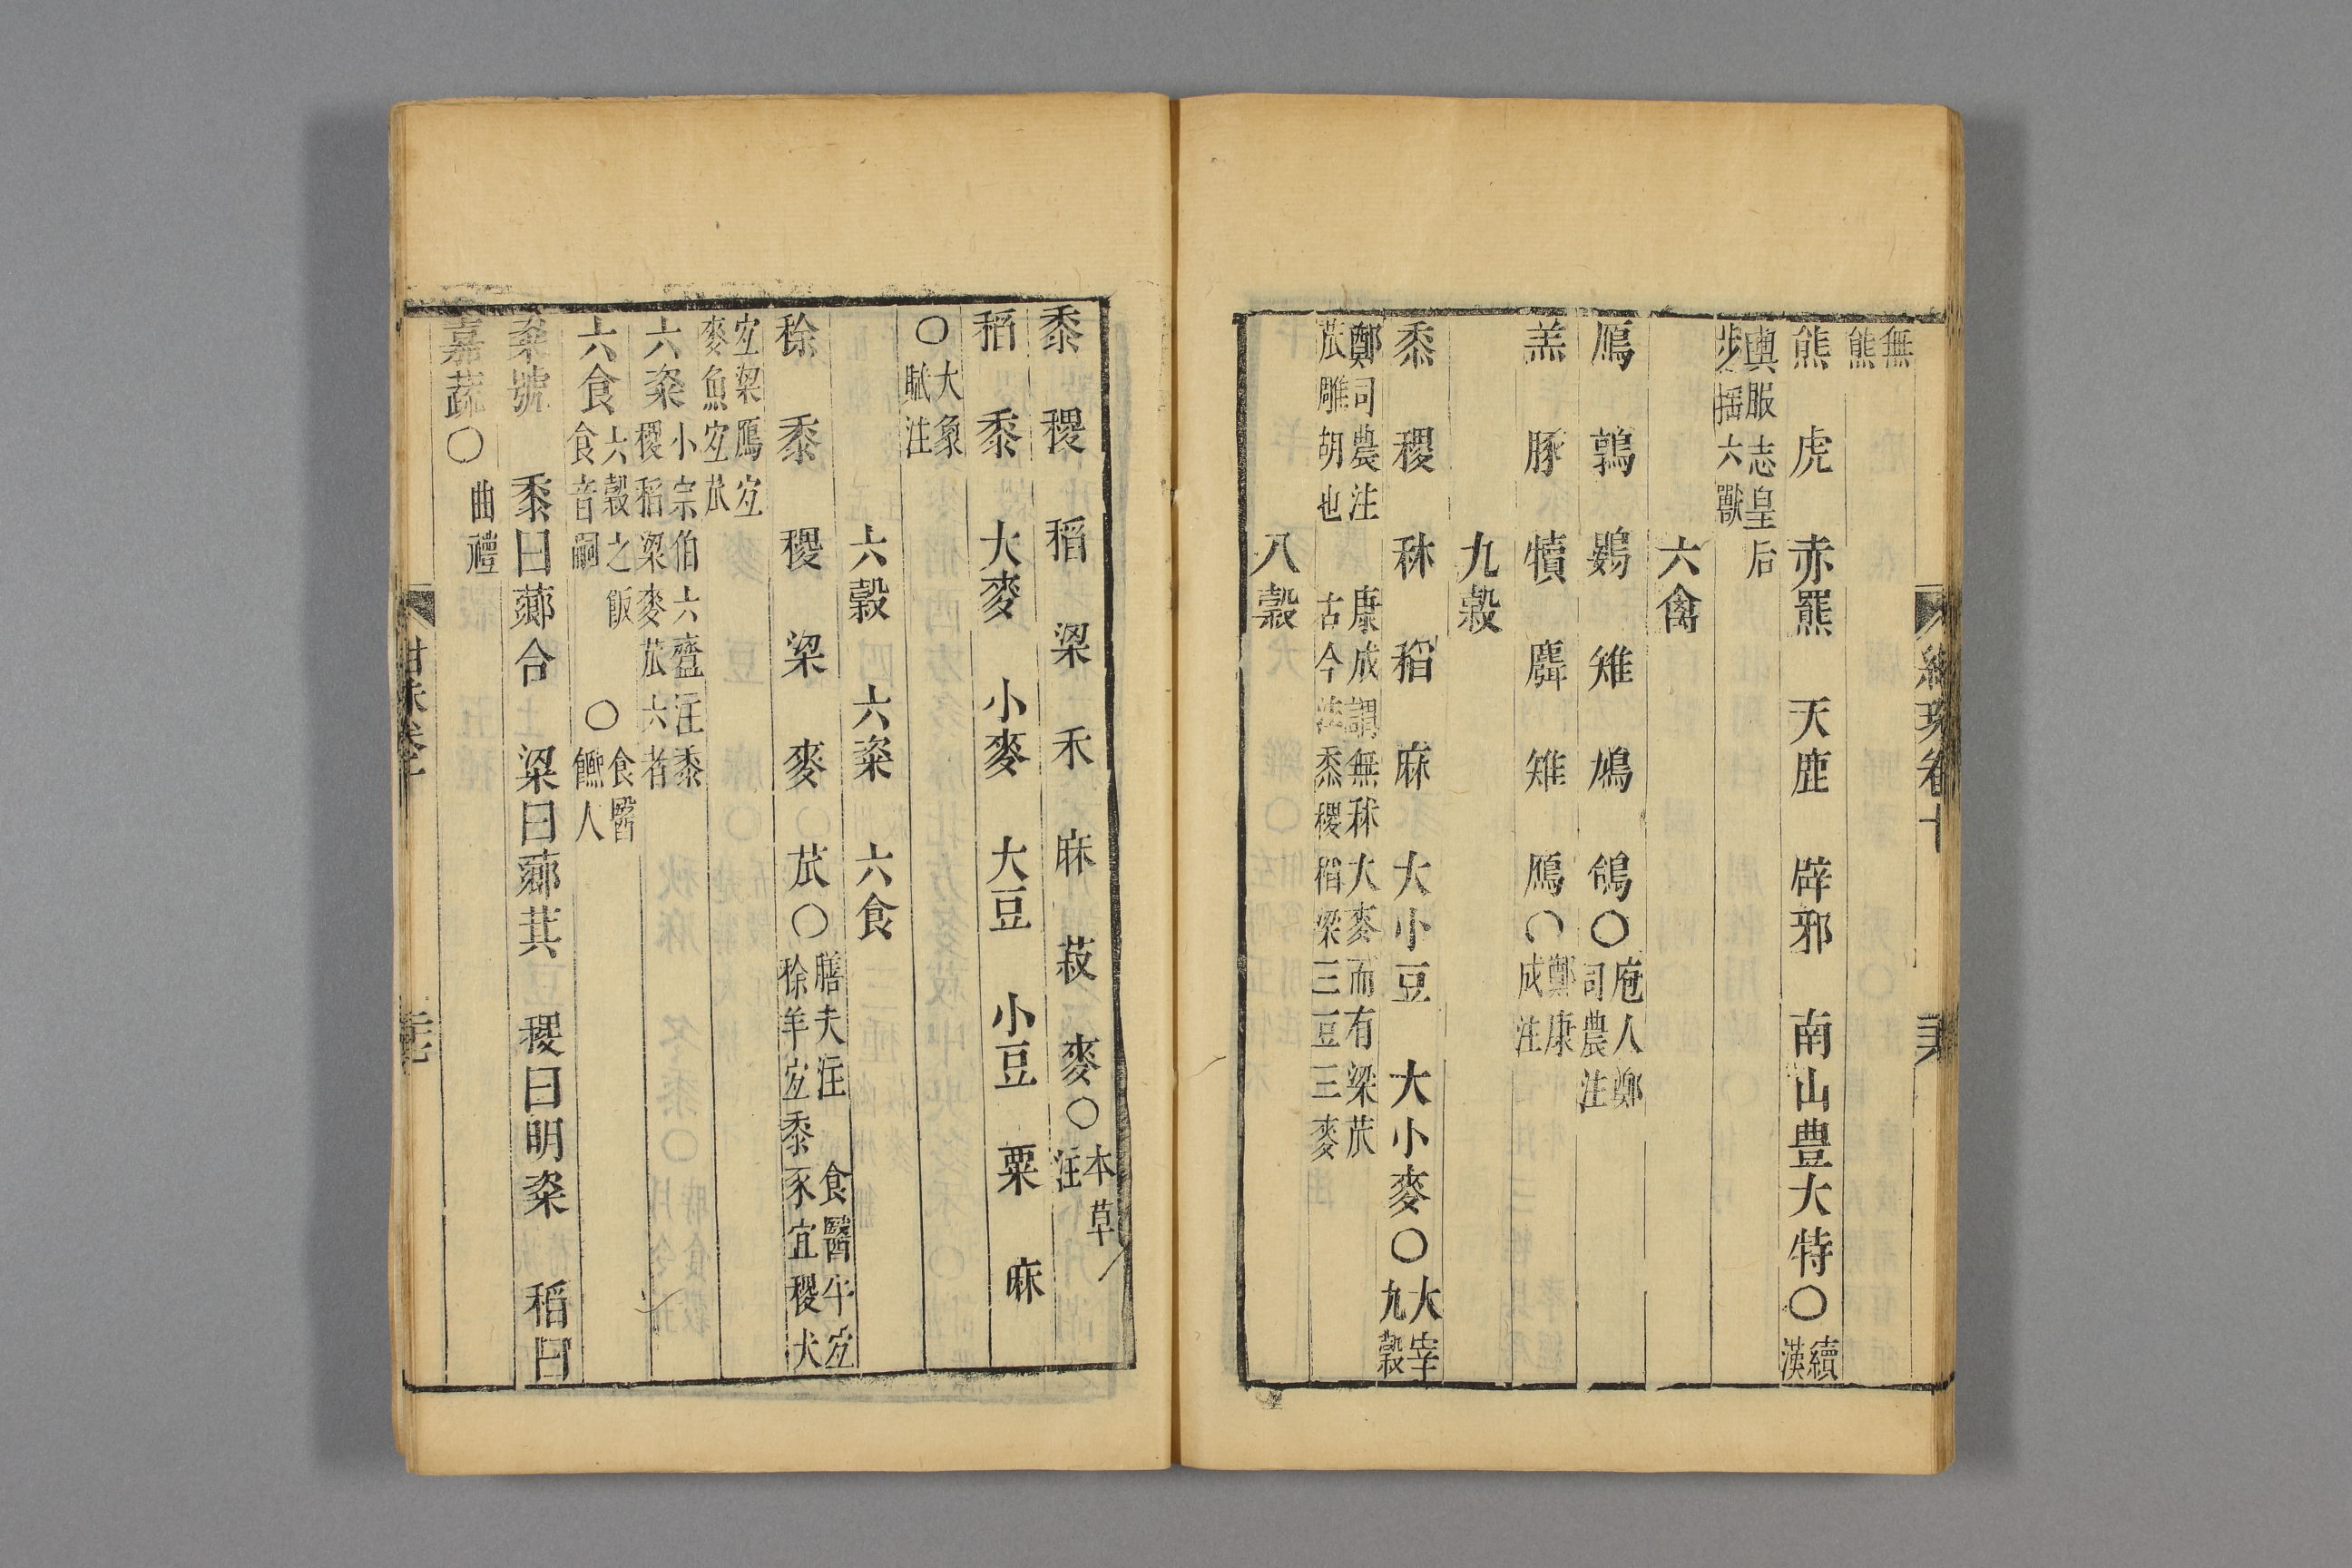 無
熊
熊 虎 赤羆 天鹿 辟邪 南山豊大特〇續
漢
輿服志皇后
步揺六獸
六禽
鴈 鶉 鷃 雉 鳩 鴿〇庖人鄭
司農注
羔 豚 犢 麛 雉 鴈〇鄭康
成注
九穀
黍 稷 秫 稻 麻 大小豆 大小麥〇大宰
九穀
鄭司農注 康成謂無秫大麥而有粱苽
苽雕胡也 古今注黍稷稻粱三豆三麥
八穀
黍 稷 稻 粱 禾 麻 菽 麥〇本草
注
稻 黍 大麥 小麥 大豆 小豆 粟 麻
〇大象
賦注
六穀 六粢 六食
稌 黍 稷 粱 麥 苽〇膳夫注 食醫牛宐
稌羊宐黍豕宜稷犬
宐粱鴈宐
麥魚宐苽
六粢小宗伯六齍注黍
稷稻粱麥苽六者
六食六穀之飯 〇食醫
食音嗣 饎人
粢號 黍曰薌合 粱曰薌萁 稷曰明粢 稻曰
嘉蔬〇曲禮